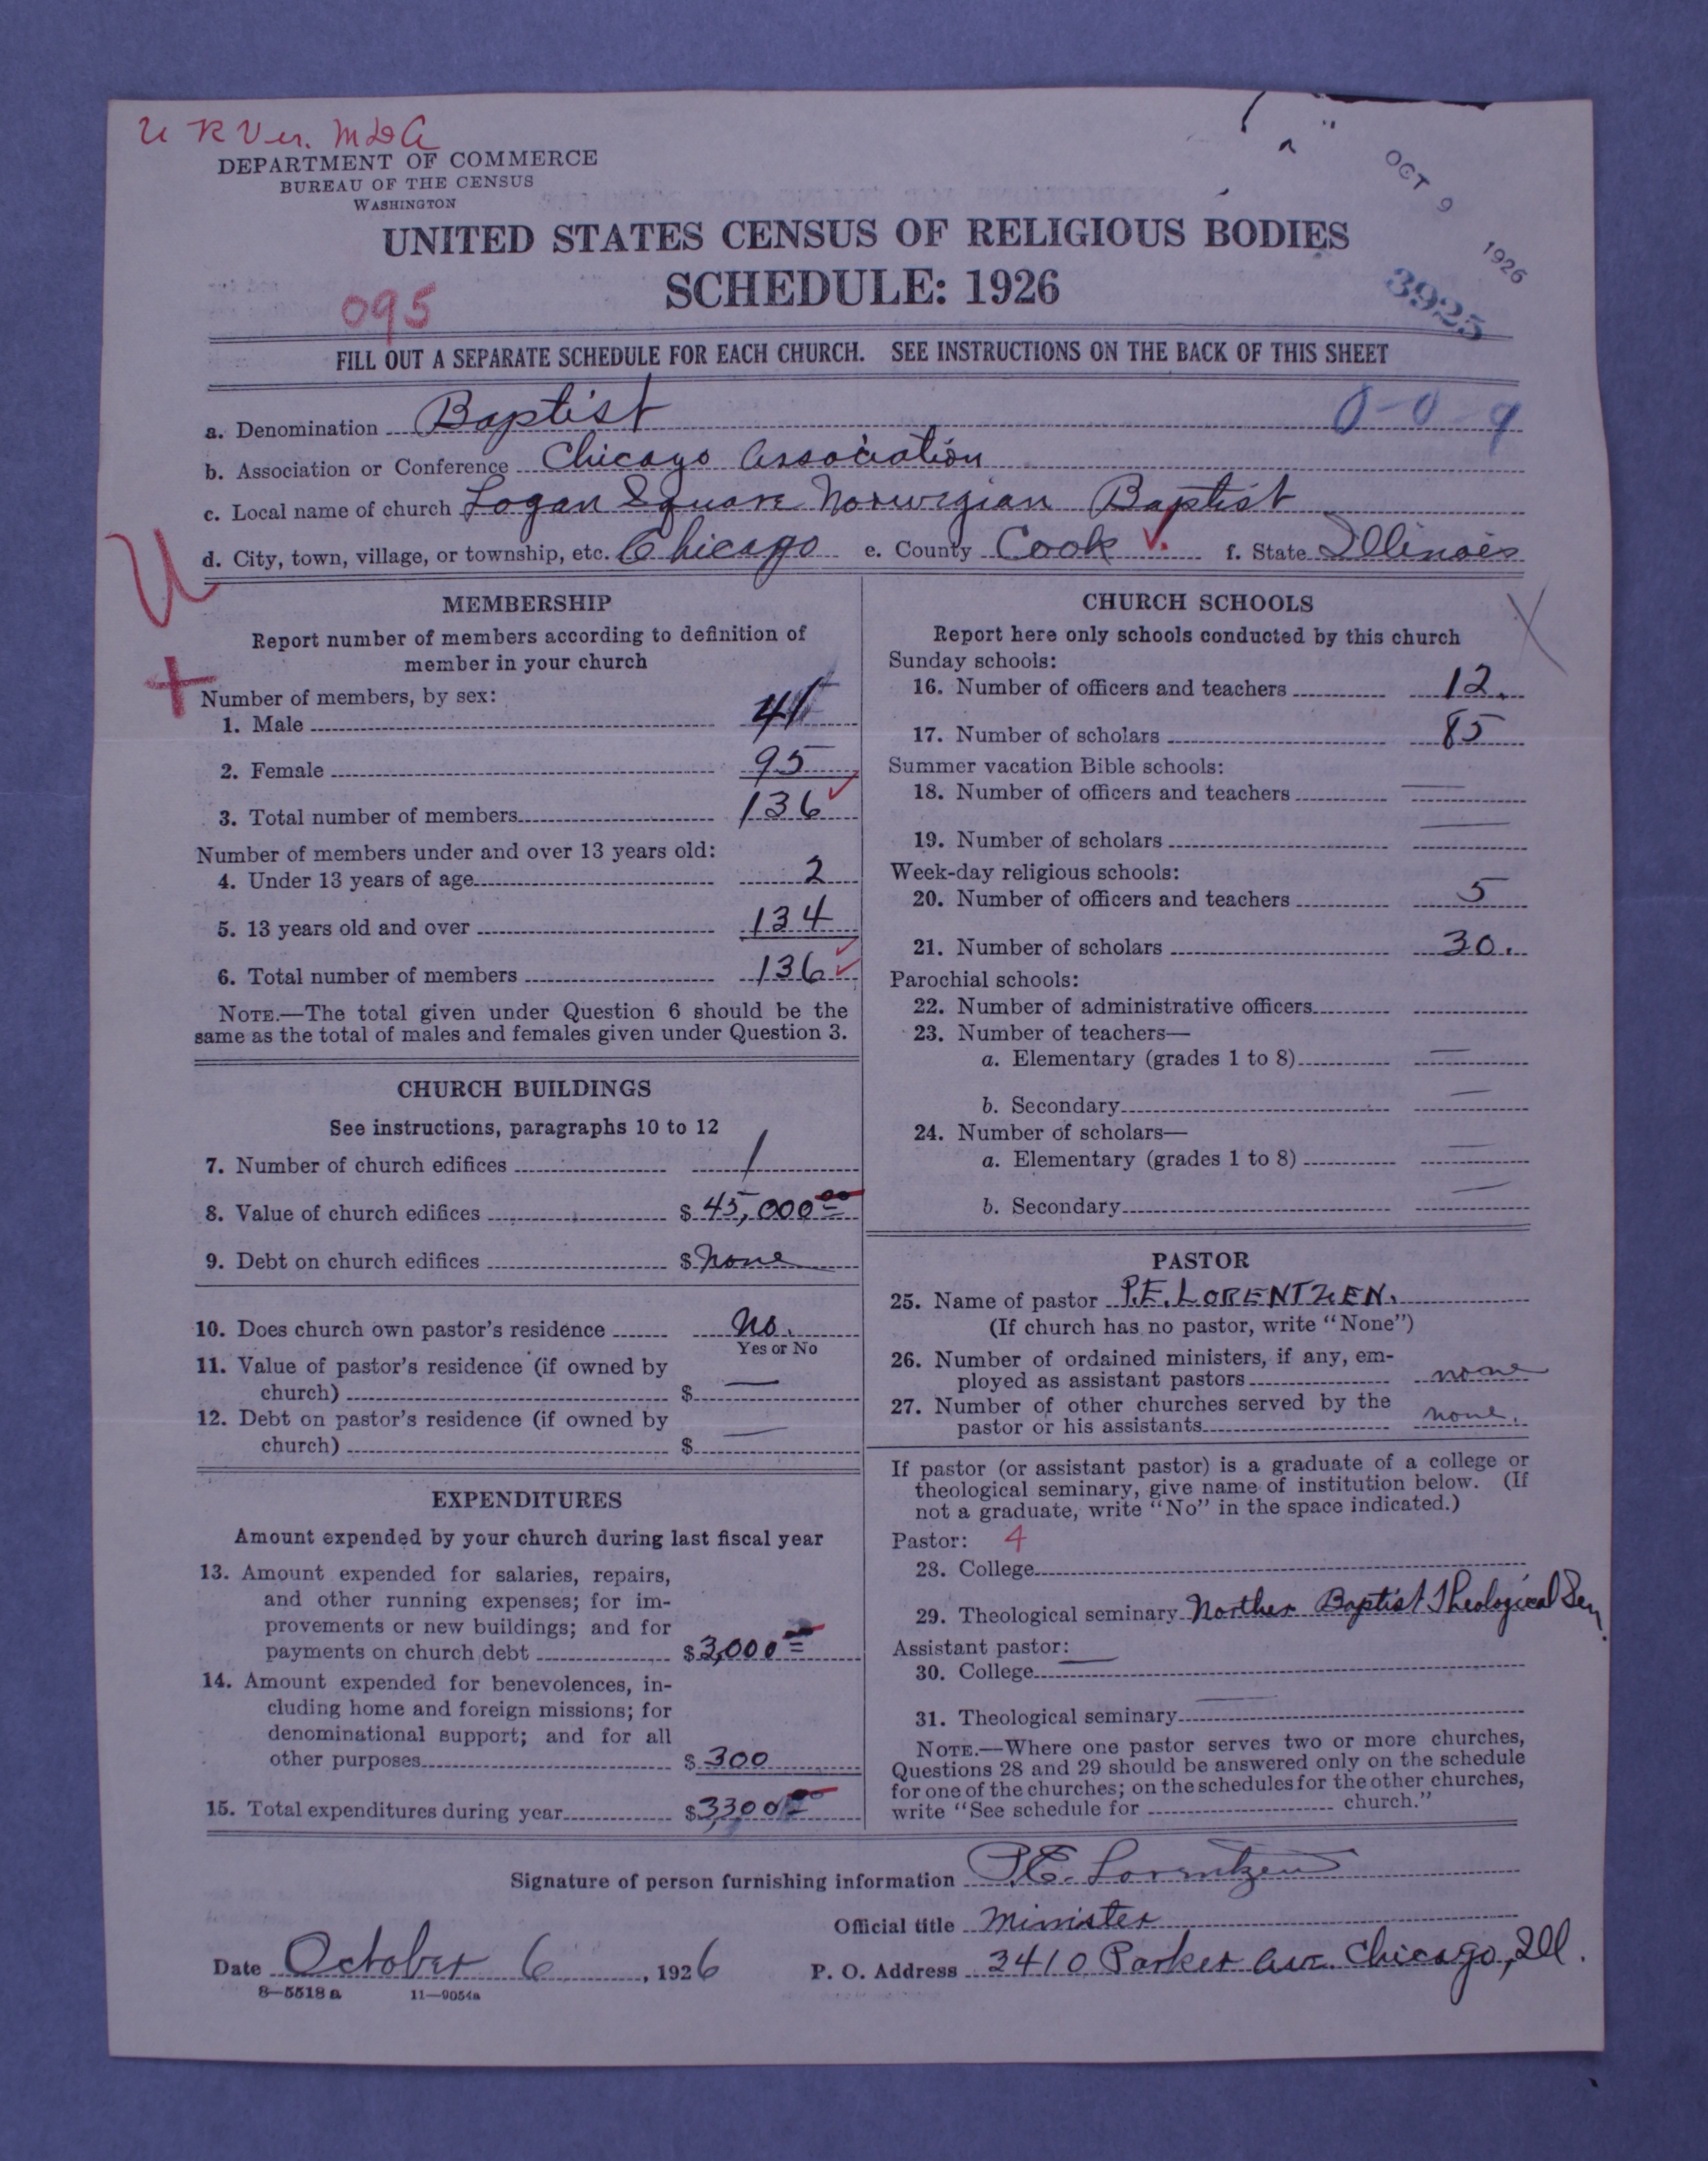 U R Ver. M&A
DEPARTMENT OF COMMERCE
BUREAU OF THE CENSUS
WASHINGTON
OCT 9 1926
UNITED STATES CENSUS OF RELIGIOUS BODIES
SCHEDULE: 1926
095
3925
FILL OUT A SEPARATE SCHEDULE FOR EACH CHURCH. SEE INSTRUCTIONS ON THE BACK OF THIS SHEET
a. Denomination Baptist 0-0-9
b. Association or Conference Chicago Association
c. Local name of church Logan Square Norwegian Baptist
d. City, town, village, or township, etc. Chicago e. County Cook f. State Illinois
MEMBERSHIP
Report number of members according to definition of
member in your church
Number of members, by sex:
1. Male 41
2. Female 95
3. Total number of members 136
Number of members under and over 13 years old:
4. Under 13 years of age 2
5. 13 years old and over 134
6. Total number of members 136
NOTE.—The total given under Question 6 should be the
same as the total of males and females given under Question 3.
CHURCH BUILDINGS
See instructions, paragraphs 10 to 12
7. Number of church edifices 1
8. Value of church edifices $ 45,000 00
9. Debt on church edifices $ none
10. Does church own pastor's residence No.
Yes or No
11. Value of pastor's residence (if owned by
church) $ —
12. Debt on pastor's residence (if owned by
church) $ —
EXPENDITURES
Amount expended by your church during last fiscal year
13. Amount expended for salaries, repairs,
and other running expenses; for im-
provements or new buildings; and for
payments on church debt $ 3,000 00
14. Amount expended for benevolences, in-
cluding home and foreign missions; for
denominational support; and for all
other purposes $ 300
15. Total expenditures during year $ 3,300 00
CHURCH SCHOOLS
Report here only schools conducted by this church
Sunday schools:
16. Number of officers and teachers 12.
17. Number of scholars 85
Summer vacation Bible schools:
18. Number of officers and teachers —
19. Number of scholars —
Week-day religious schools:
20. Number of officers and teachers 5
21. Number of scholars 30.
Parochial schools:
22. Number of administrative officers
23. Number of teachers—
a. Elementary (grades 1 to 8) —
b. Secondary —
24. Number of scholars—
a. Elementary (grades 1 to 8) —
b. Secondary —
PASTOR
25. Name of pastor P.E. LORENTZEN.
(If church has no pastor, write "None")
26. Number of ordained ministers, if any, em-
ployed as assistant pastors none
27. Number of other churches served by the
pastor or his assistants none.
If pastor (or assistant pastor) is a graduate of a college or
theological seminary, give name of institution below. (If
not a graduate, write "No" in the space indicated.)
Pastor: 4
28. College
29. Theological seminary Norther Baptist Theological Sem.
Assistant pastor:
30. College —
31. Theological seminary —
NOTE.—Where one pastor serves two or more churches,
Questions 28 and 29 should be answered only on the schedule
for one of the churches; on the schedules for the other churches,
write "See schedule for church."
Signature of person furnishing information P.E. Lorentzen
Official title Minister
Date October 6, 1926 P. O. Address 3410 Parker Ave. Chicago, Ill.
8—5518a 11—9054a